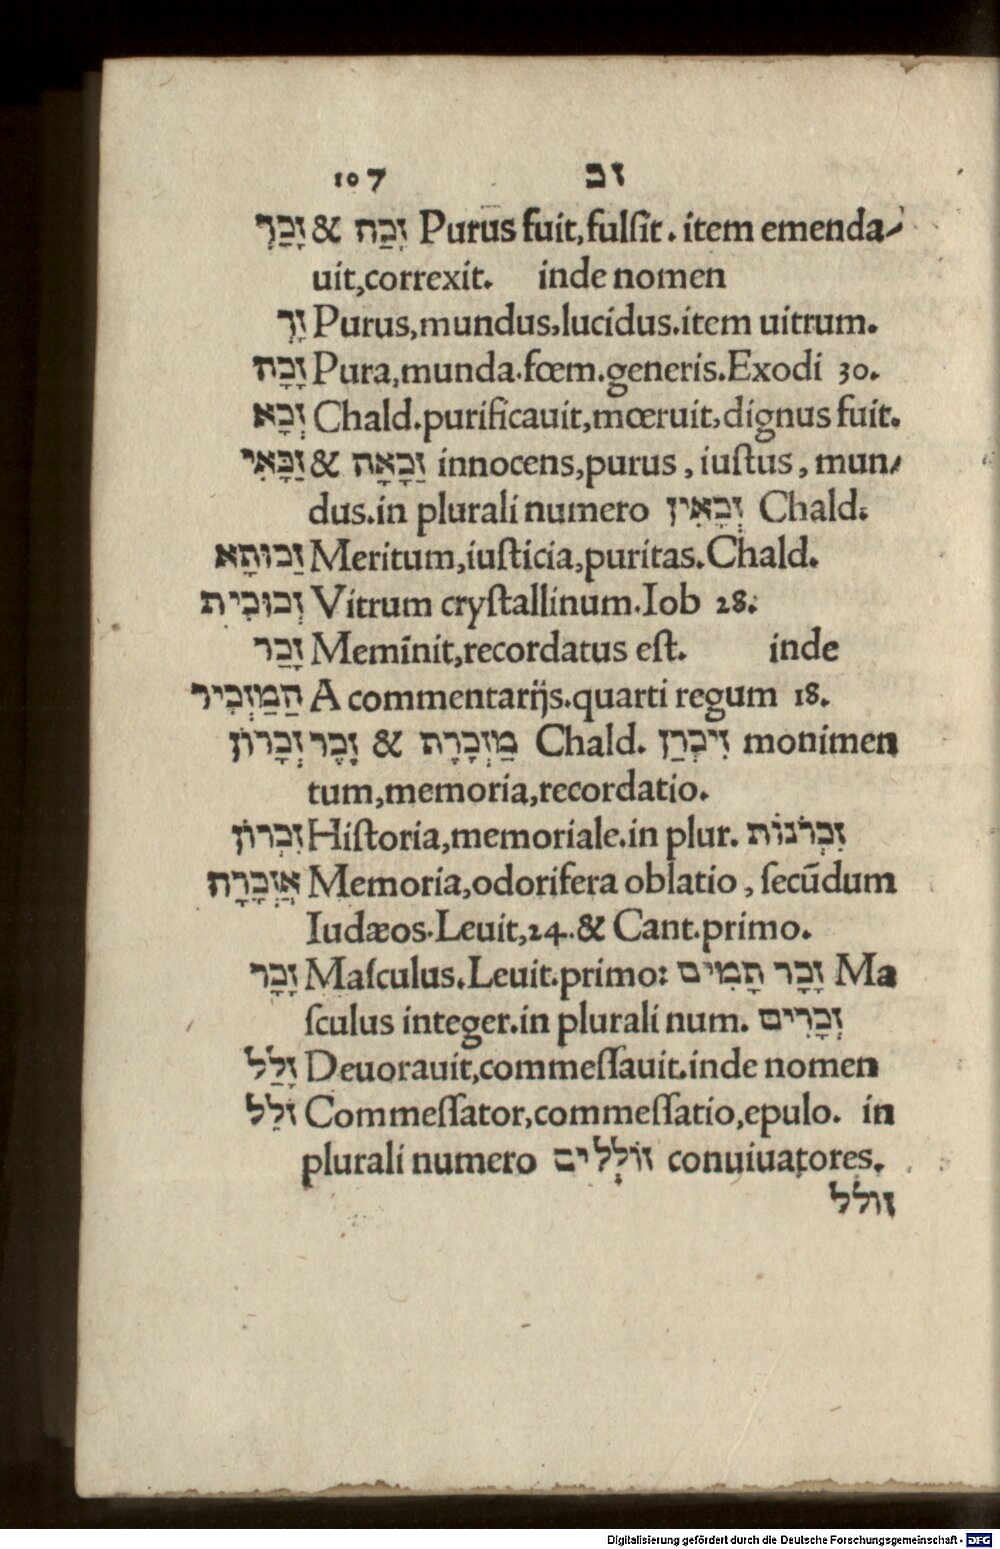 107 זכ
זָכַךְ & זָכָה Purus fuit, fulsit. item emenda-
uit, correxit. inde nomen
זָךְ Purus, mundus, lucidus. item uitrum.
זָכָה Pura, munda. fœm. generis. Exodi 30.
זְכָא Chald. purificauit, mœruit, dignus fuit.
זַכָּאִי & זַכָאָה innocens, purus, iustus, mun-
dus. in plurali numero זְכָאִין Chald.
זַכוּתָא Meritum, iusticia, puritas. Chald.
זְכוּכִית Vitrum crystallinum. Iob 28.
זָכַר Meminit, recordatus est. inde
הַמַּזְכִיר A commentarijs. quarti regum 18.
זְכָרוֹן זֶכֶר & מַזְכָרֶת Chald. דִיכְרַן monimen
tum, memoria, recordatio.
זִכְרוֹן Historia, memoriale. in plur. זִכְרֹנוֹת
אֲזְכָרָה Memoria, odorifera oblatio, secūdum
Iudæos. Leuit, 24. & Cant. primo.
זָכָר Masculus. Leuit. primo: זָכָר תָמִים Ma
sculus integer. in plurali num. זְכָרִים
זָלַל Deuorauit, commessauit. inde nomen
זֹלֵל Commessator, commessatio, epulo. in
plurali numero זוֹלְלִים conuiuatores.
זולל
Digitalisierung gefördert durch die Deutsche Forschungsgemeinschaft - DFG